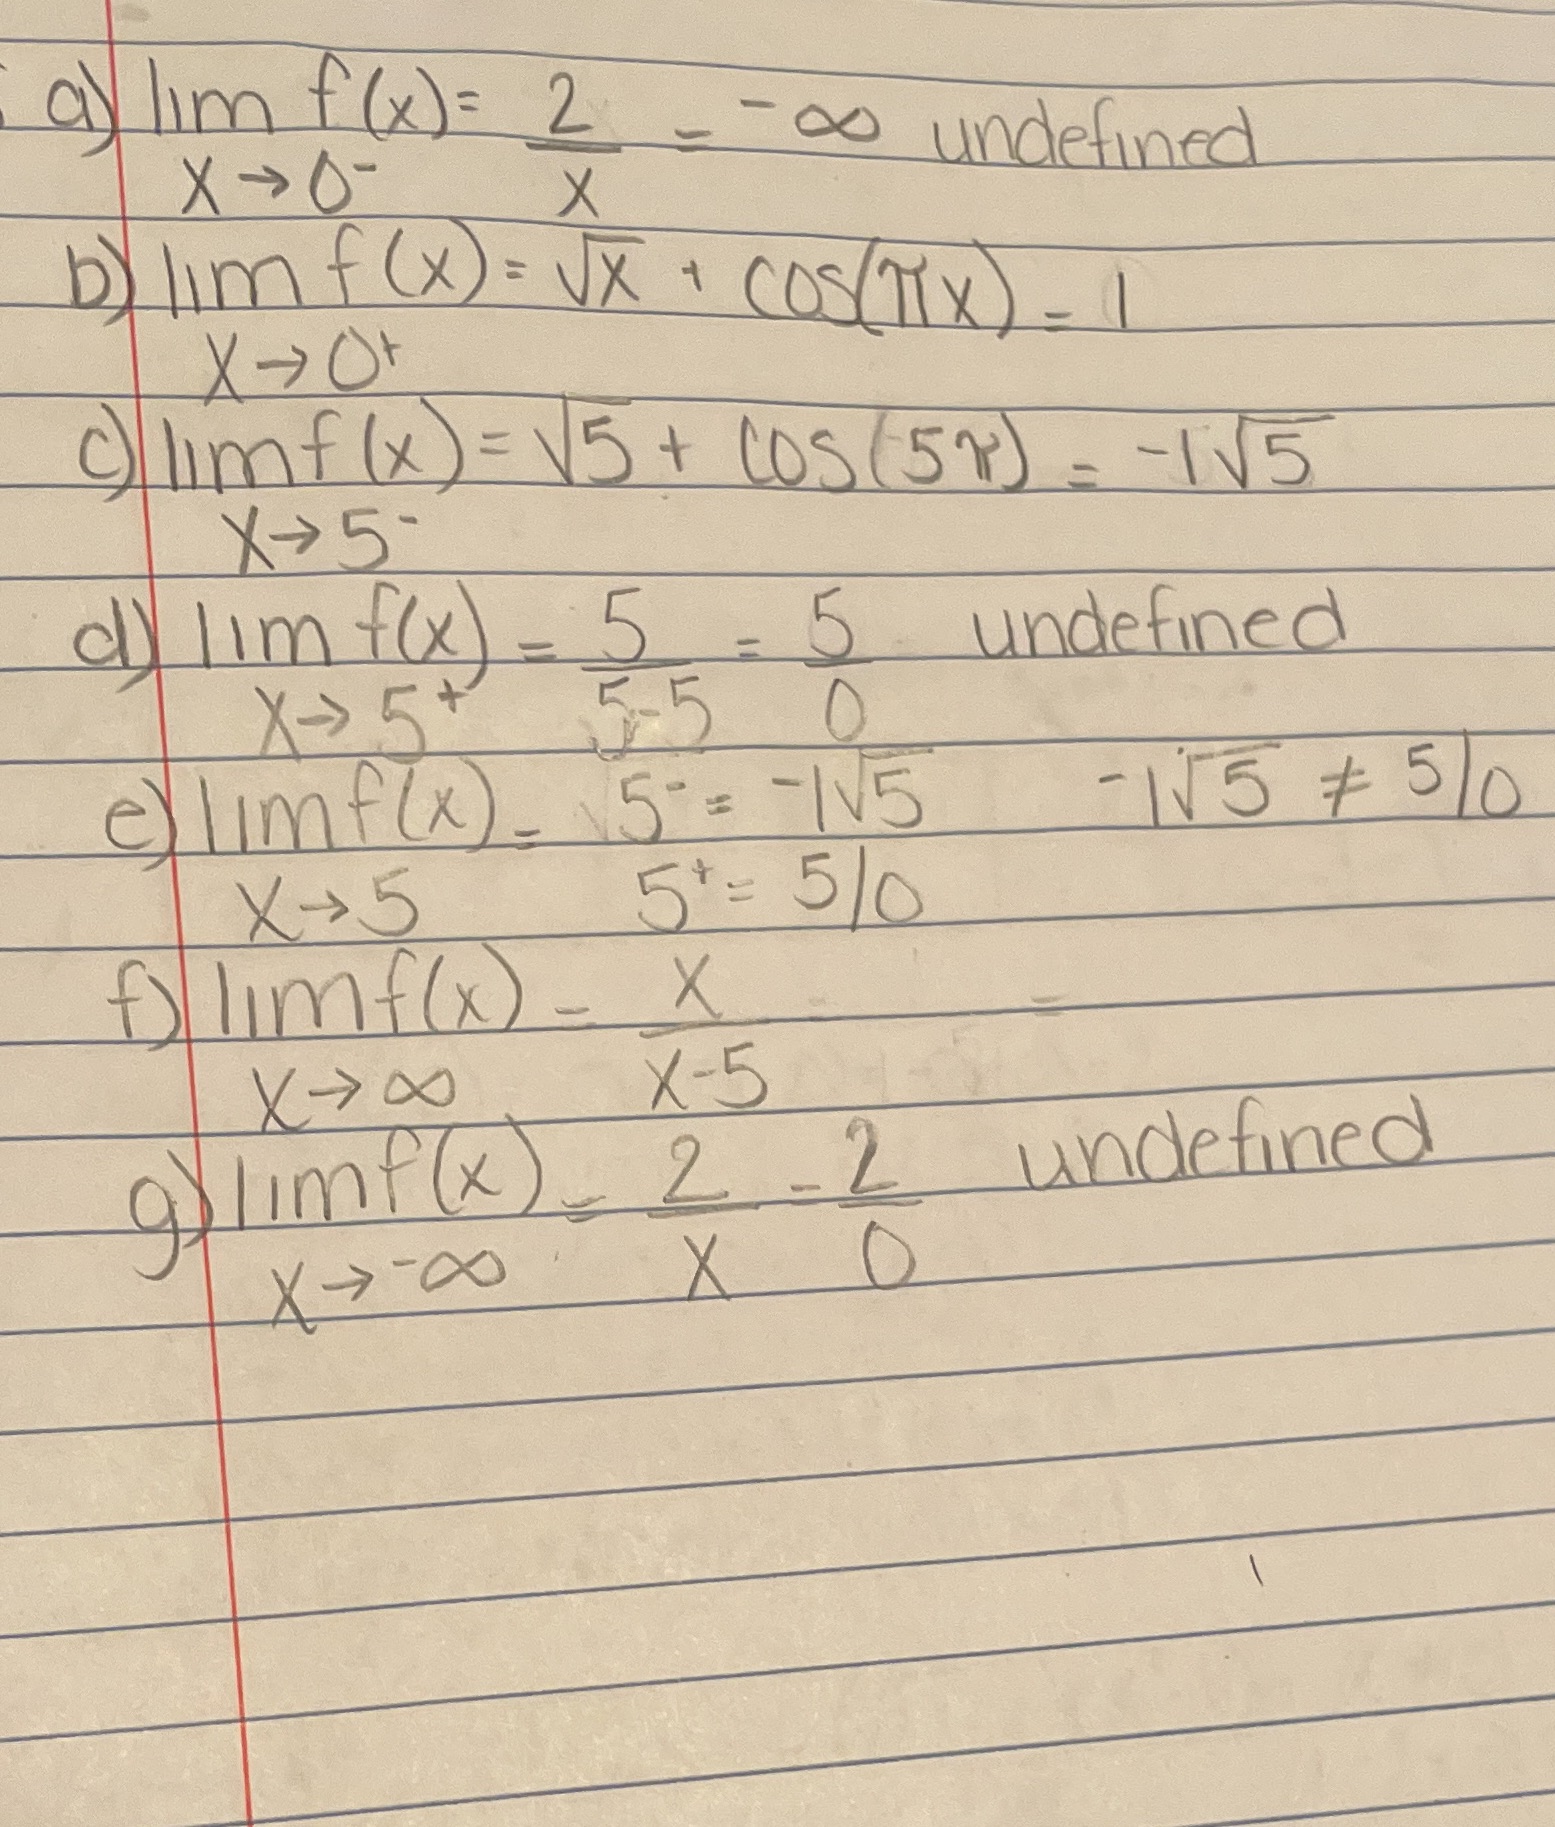 a) lim f(x) = 2/x = -∞ undefined
x → 0⁻
b) lim f(x) = √x + cos(πx) = 1
x → 0⁺
c) lim f(x) = √5 + cos(5π) = -1√5
x → 5⁻
d) lim f(x) = 5/(5-5) = 5/0 undefined
x → 5⁺
e) lim f(x) = 5⁻ = -1√5 -1√5 ≠ 5/0
x → 5 5⁺ = 5/0
f) lim f(x) = x/(x-5)
x → ∞
g) lim f(x) = 2/x = 2/0 undefined
x → -∞